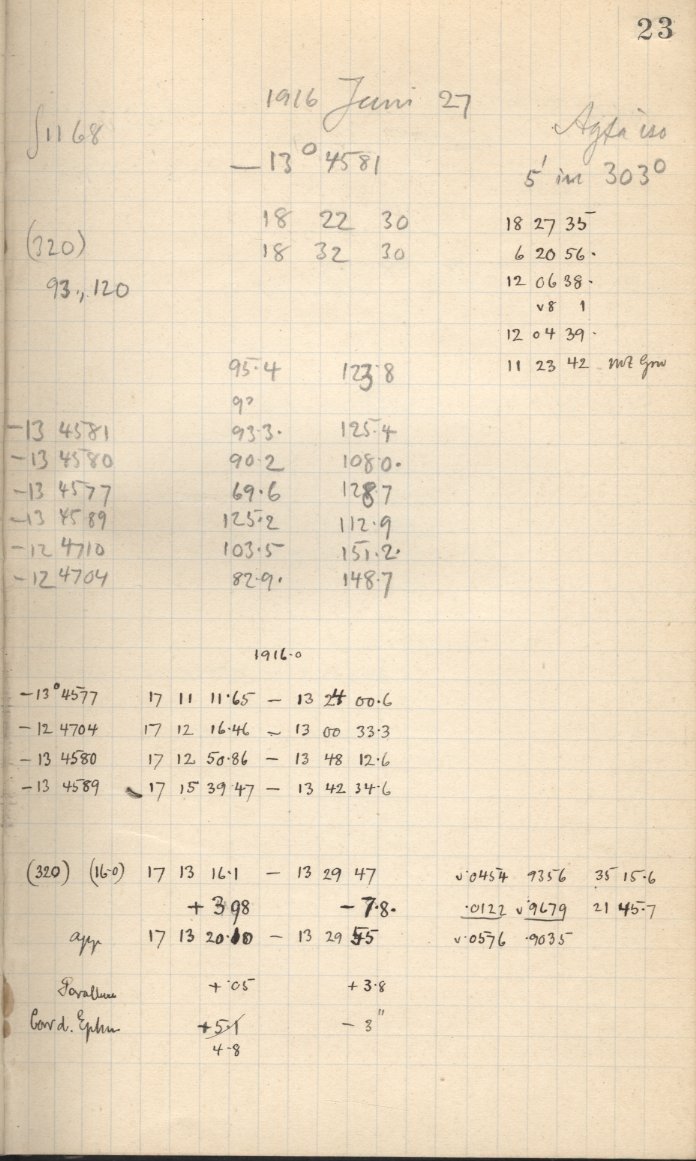 23
1916 Juni 27
1168
Agfa iso
− 13° 4581
5' in 303°
18 22 30
18 27 35
(320) 18 32 30
6 20 56.
93., 120
12 06 38.
v8 1
12 04 39.
11 23 42 mt Grw
95.4 123.8
9?
−13 4581 93.3. 125.4
−13 4580 90.2 108.0.
−13 4577 69.6 128.7
−13 4589 125.2 112.9
−12 4710 103.5 151.2.
−12 4704 82.9. 148.7
1916.0
−13° 4577 17 11 11.65 − 13 24 00.6
−12 4704 17 12 16.46 − 13 00 33.3
−13 4580 17 12 50.86 − 13 48 12.6
−13 4589 17 15 39.47 − 13 42 34.6
(320) (16.0) 17 13 16.1 − 13 29 47 v.0454 9356 35 15.6
+ 3.98 − 7.8. .0122 v.9679 21 45.7
app 17 13 20.10 − 13 29 55 v.0576 .9035
Parallaxe +.05 +3.8
Coord. Ephm +5.1 − 3"
4.8